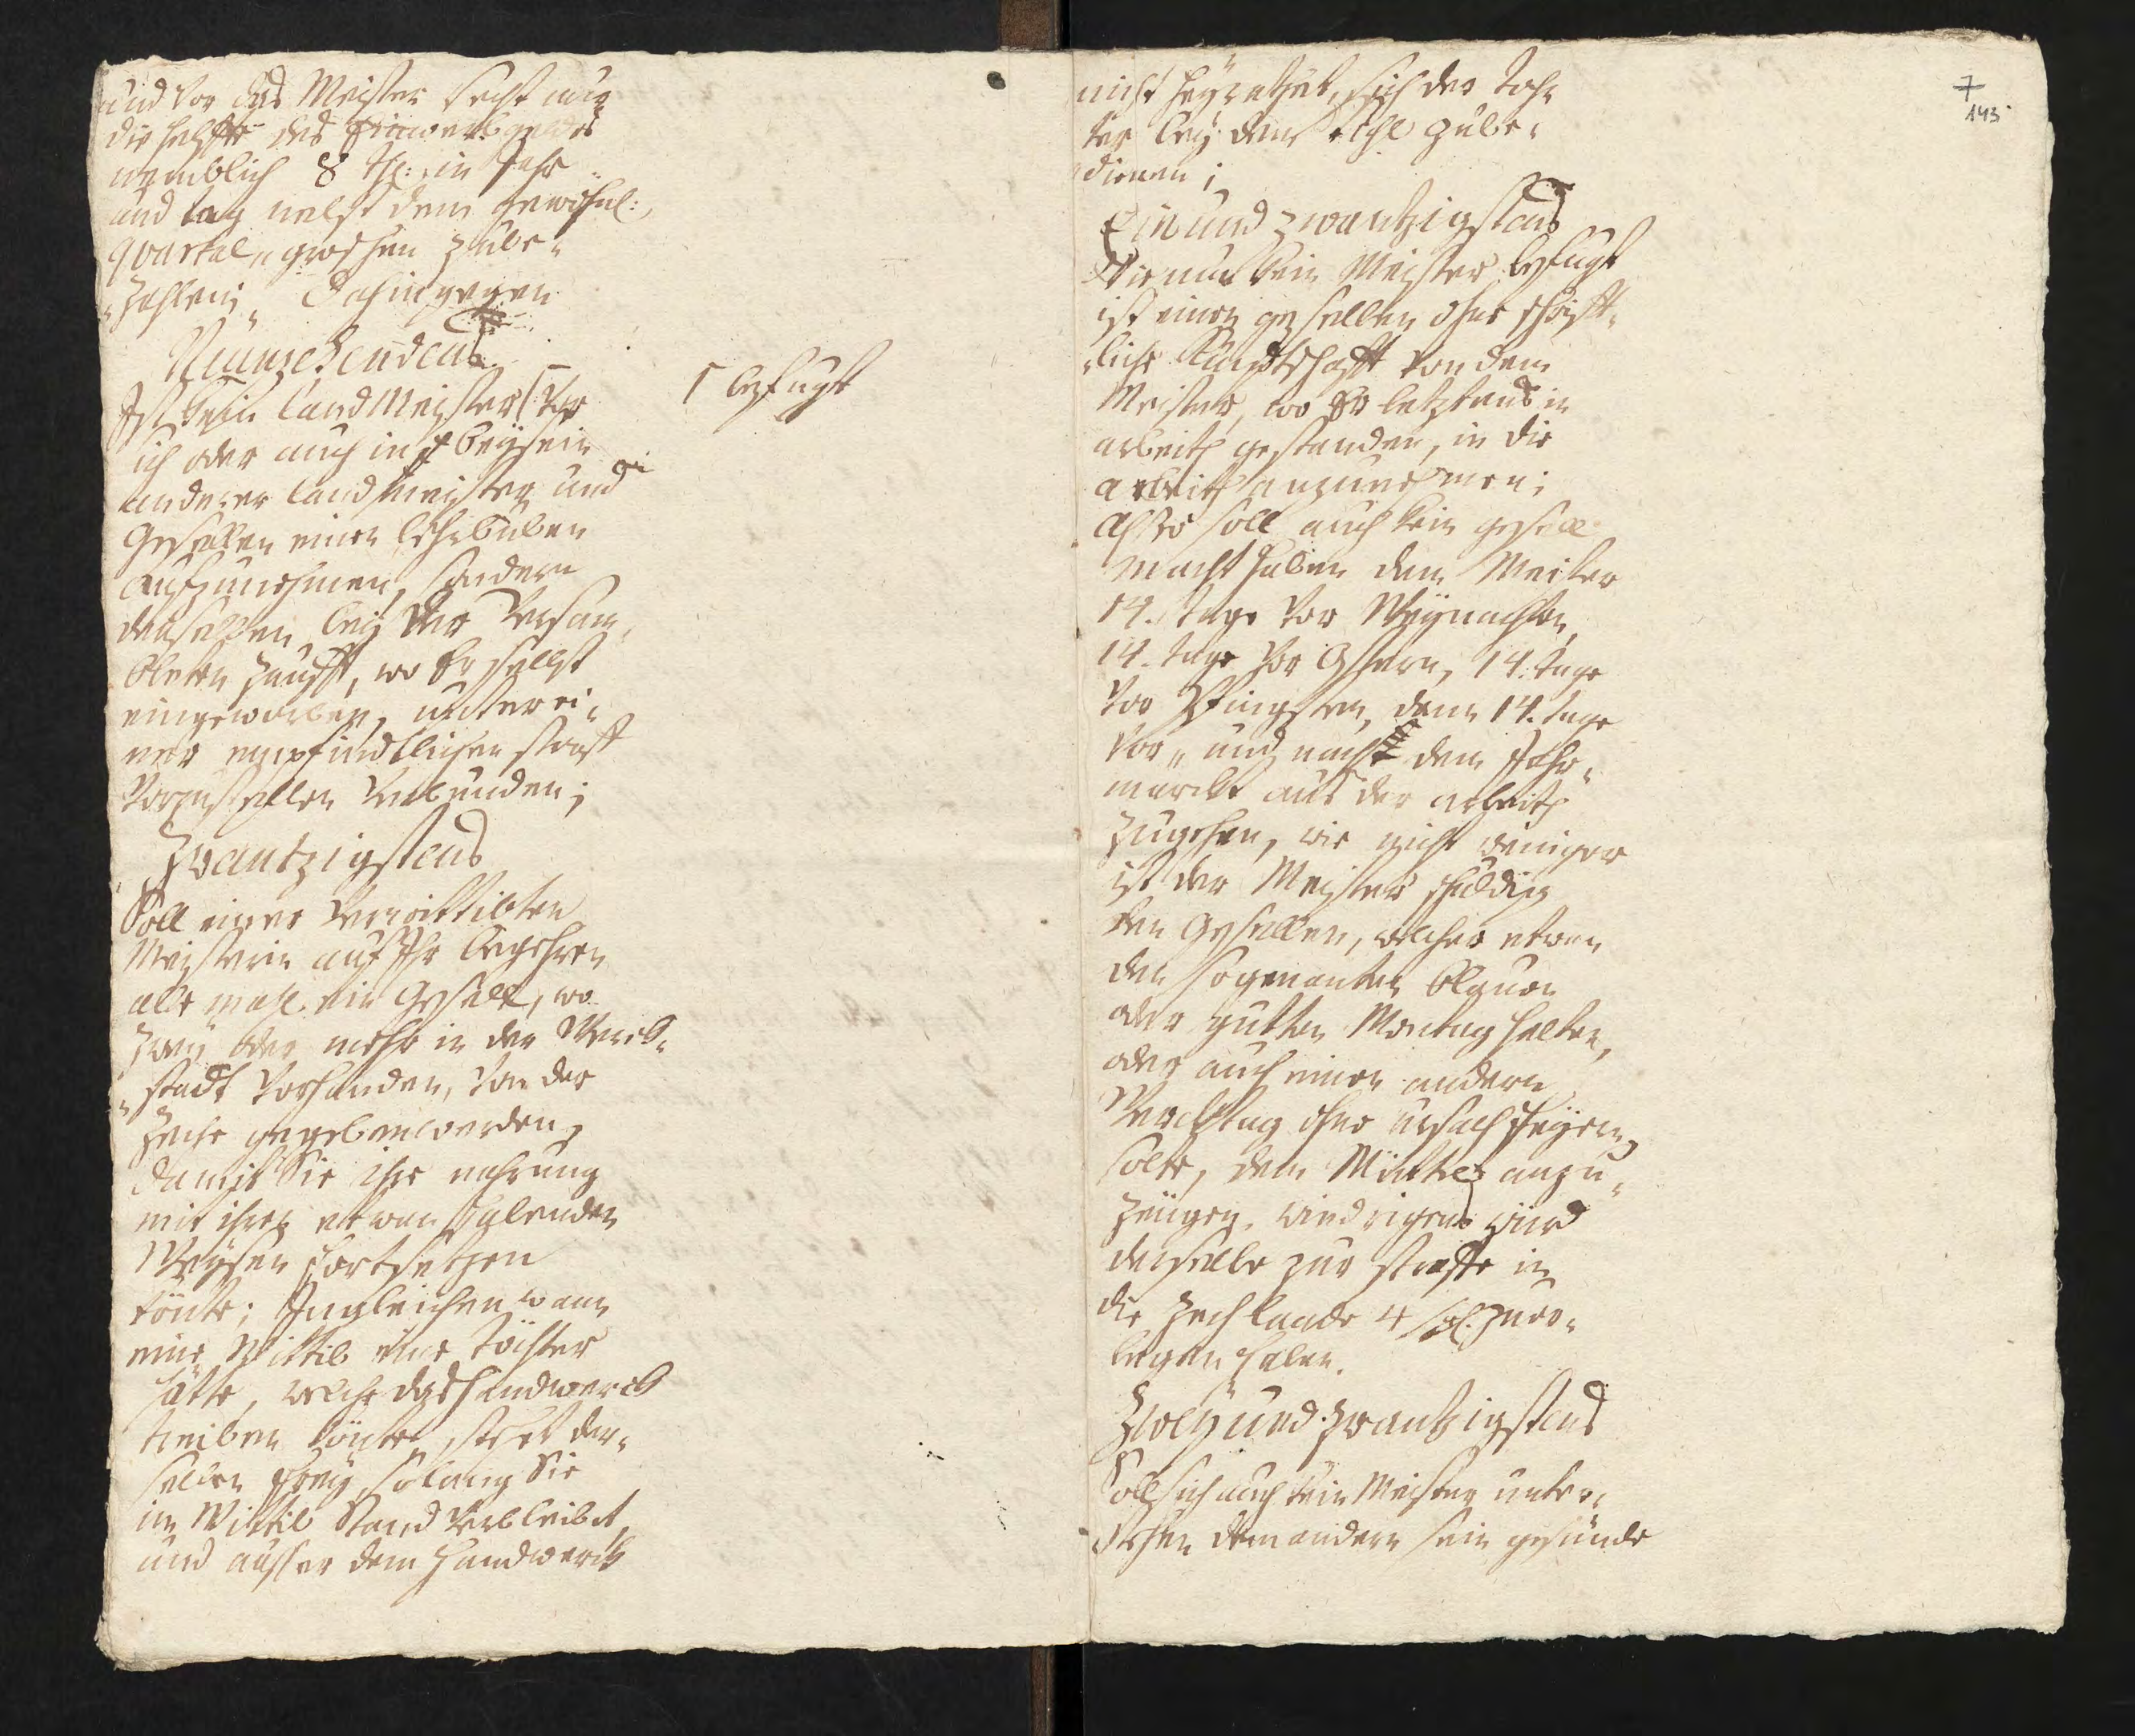 und vor das Meister Recht nur
die helffte des Einwerbgeldes
nemblich 8 tl: in Jahr
und tag nebst dem gewöhnl:
quartal„ groschen zube„
„zahlen; Dahingegen
Neunzehendens
Ist kein LandMeister vor
sich oder auch in beysein
anderer landmeister und
Gesellen einen lehrbuben
aufzunehmen, sondern
denselben bey der Versam„
bleten zunfft, wo Er selbst
eingeworben, unter ei„
ner empfindlichen straff
Vorzustellen Verbunden;
┌ befugt
Zwantzigstens
Soll einer Verwittibten
Meisterin auf Ihr begehren
alle mahl ein Gesell, wo
zwey oder mehr in der Werck„
„stadt Vorhanden, Von der
Zeche gegeben werden,
damit Sie ihre nahrung
mit ihren etwan habenden
Weysen fortsetzen
könte; Ingleichen wann
eine Wittib eine Tochter
hätte, welche das handwerck
treiben könte, stehet der„
selben frey, solang Sie
im Wittib Stand Verbleibet,
und ausser dem handwerck
7
143
nicht heyrathet, sich der Toch„
ter bey dem zube„
dienen;
Ein und zwantzigstens
Wie nun kein Meister befugt
ist einen gesellen ohne schrifft„
„liche Kundtschafft von dem
Meister, wo Er letztens in
arbeith gestanden, in die
arbeith anzunehmen;
Also soll auch kein gesell
macht haben dem Meister
14. tage vor Weynachten,
14. tage vor Ostern, 14. tage
vor Pfingsten, dann 14. tage
vor„ und nach dem Jahr„
marckt aus der arbeith
zugehen, wie nicht weniger
ist der Meister schuldig
den Gesellen, welcher etwan
den sogenanten blauen
oder gutten Montag halten,
oder auch einen andern
Wercktag ohne ursach feyern
solte, dem Mittel anzu„
zeugen, wiedrigens wird
derselbe zur straffe in
die Zechlaade 4 zuer„
legen haben.
Zwey und zwantzigstens
Soll sich auch kein Meister unter„
stehen dem andern sein gesünde